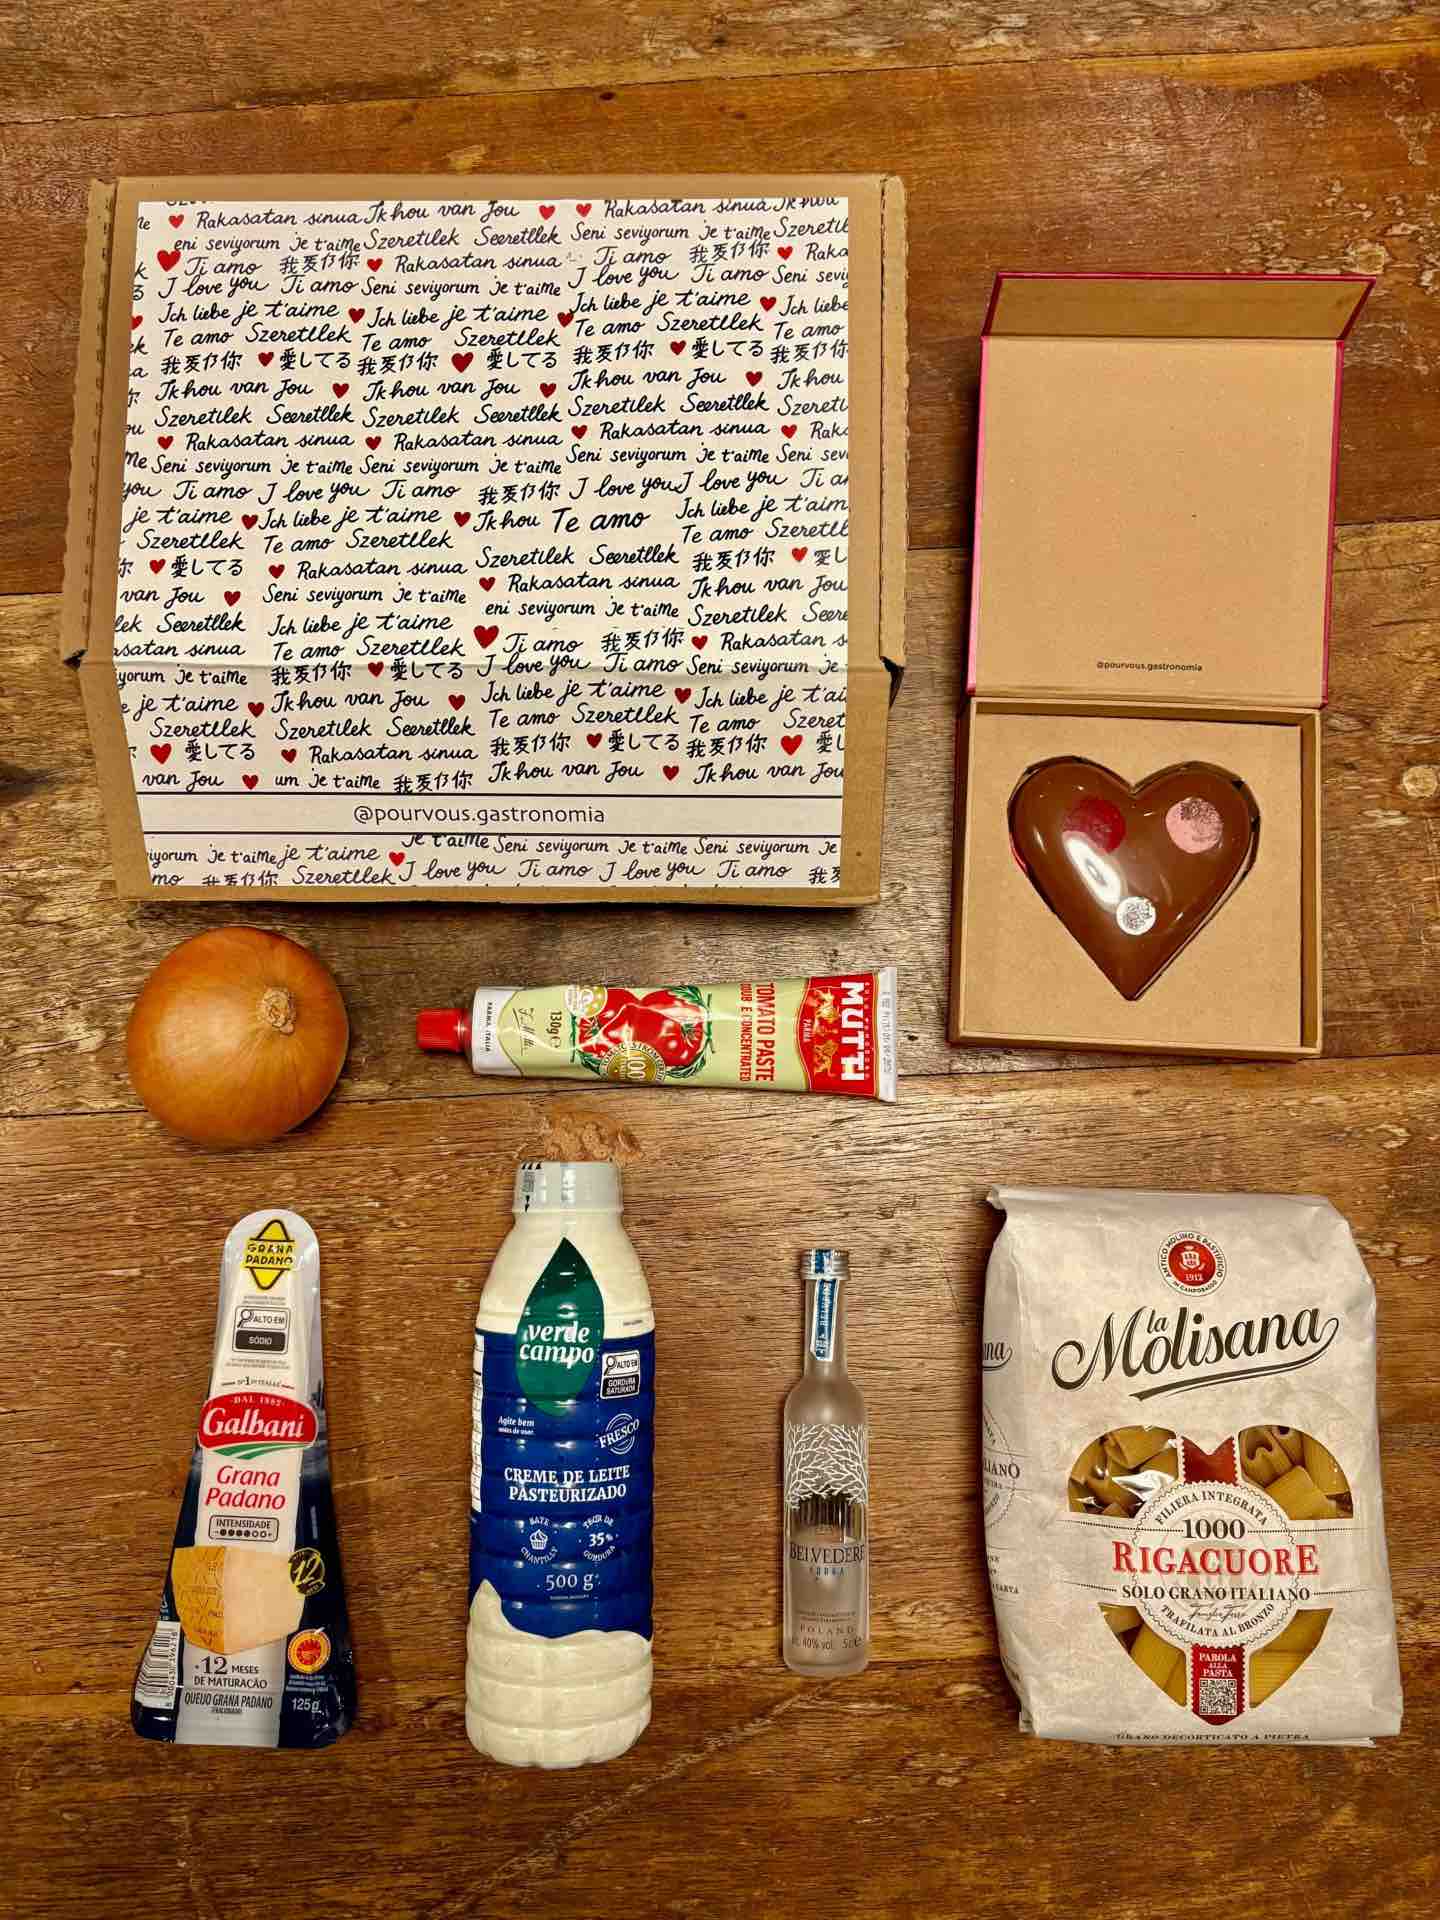 Rakasatan sinua Ik hou van Jou Rakasatan sinua
eni seviyorum je t'aime Szeretlek Seeretllek Seni seviyorum je t'aime
Ti amo 我爱你 Rakasatan sinua Ti amo 我爱你
I love you Ti amo Seni seviyorum je t'aime I love you Ti amo
Ich liebe je t'aime Ich liebe je t'aime Ich liebe je t'aime
Te amo Szeretllek Te amo Szeretllek Te amo Szeretllek Te amo
我爱你 愛してる 我爱你 愛してる 我爱你 愛してる 我爱你
Ik hou van Jou Ik hou van Jou Ik hou van Jou Ik hou
Szeretlek Seeretllek Szeretlek Seeretllek Szeretlek Seeretllek
Rakasatan sinua Rakasatan sinua Rakasatan sinua
me Seni seviyorum je t'aime Seni seviyorum je t'aime Seni seviyorum je t'aime
you Ti amo I love you Ti amo 我爱你 I love you I love you
je t'aime Ich liebe je t'aime Ik hou Te amo Ich liebe je t'aim
Szeretllek Te amo Szeretllek Te amo
愛してる Rakasatan sinua Szeretlek Seeretllek 我爱你
van Jou Seni seviyorum je t'aime Rakasatan sinua Ik hou van Jou
lek Seeretllek Ich liebe je t'aime eni seviyorum je t'aime Szeretlek
asatan sinua Te amo Szeretllek Ti amo 我爱你 Rakasatan
yorum je t'aime 我爱你 愛してる I love you Ti amo Seni seviyorum je
e je t'aime Ik hou van Jou Ich liebe je t'aime Ich liebe je t'ai
Szeretllek Szeretlek Seeretllek Te amo Szeretllek Te amo
愛してる Rakasatan sinua 我爱你 愛してる 我爱你
van Jou um je t'aime 我爱你 Ik hou van Jou Ik hou van Jou
@pourvous.gastronomia
iyorum je t'aime je t'aime je t'aime Seni seviyorum je t'aime Seni seviyorum je
amo 我爱你 Szeretllek I love you Ti amo I love you Ti amo
@pourvous.gastronomia
MUTTI
PARMA
TOMATO PASTE
DOUBLE CONCENTRATED
130g e
PARMA, ITALIA
GRANA
PADANO
ALTO EM
SÓDIO
DAL 1882
Galbani
Grana
Padano
INTENSIDADE
12
+12 MESES
DE MATURAÇÃO
QUEIJO GRANA PADANO
(FRACIONADO)
125g
verde
campo
ALTO EM
GORDURA
SATURADA
Agite bem
antes de usar.
FRESCO
CREME DE LEITE
PASTEURIZADO
BATE
CHANTILLY
TEOR DE
35%
GORDURA
500 g
BELVEDERE
VODKA
POLAND
alc. 40% vol. 5cl e
ANTICO MOLINO E PASTIFICIO
1912
IN CAMPOBASSO
la
Molisana
FILIERA INTEGRATA
1000
RIGACUORE
SOLO GRANO ITALIANO
TRAFILATA AL BRONZO
PAROLA
ALLA
PASTA
GRANO DECORTICATO A PIETRA